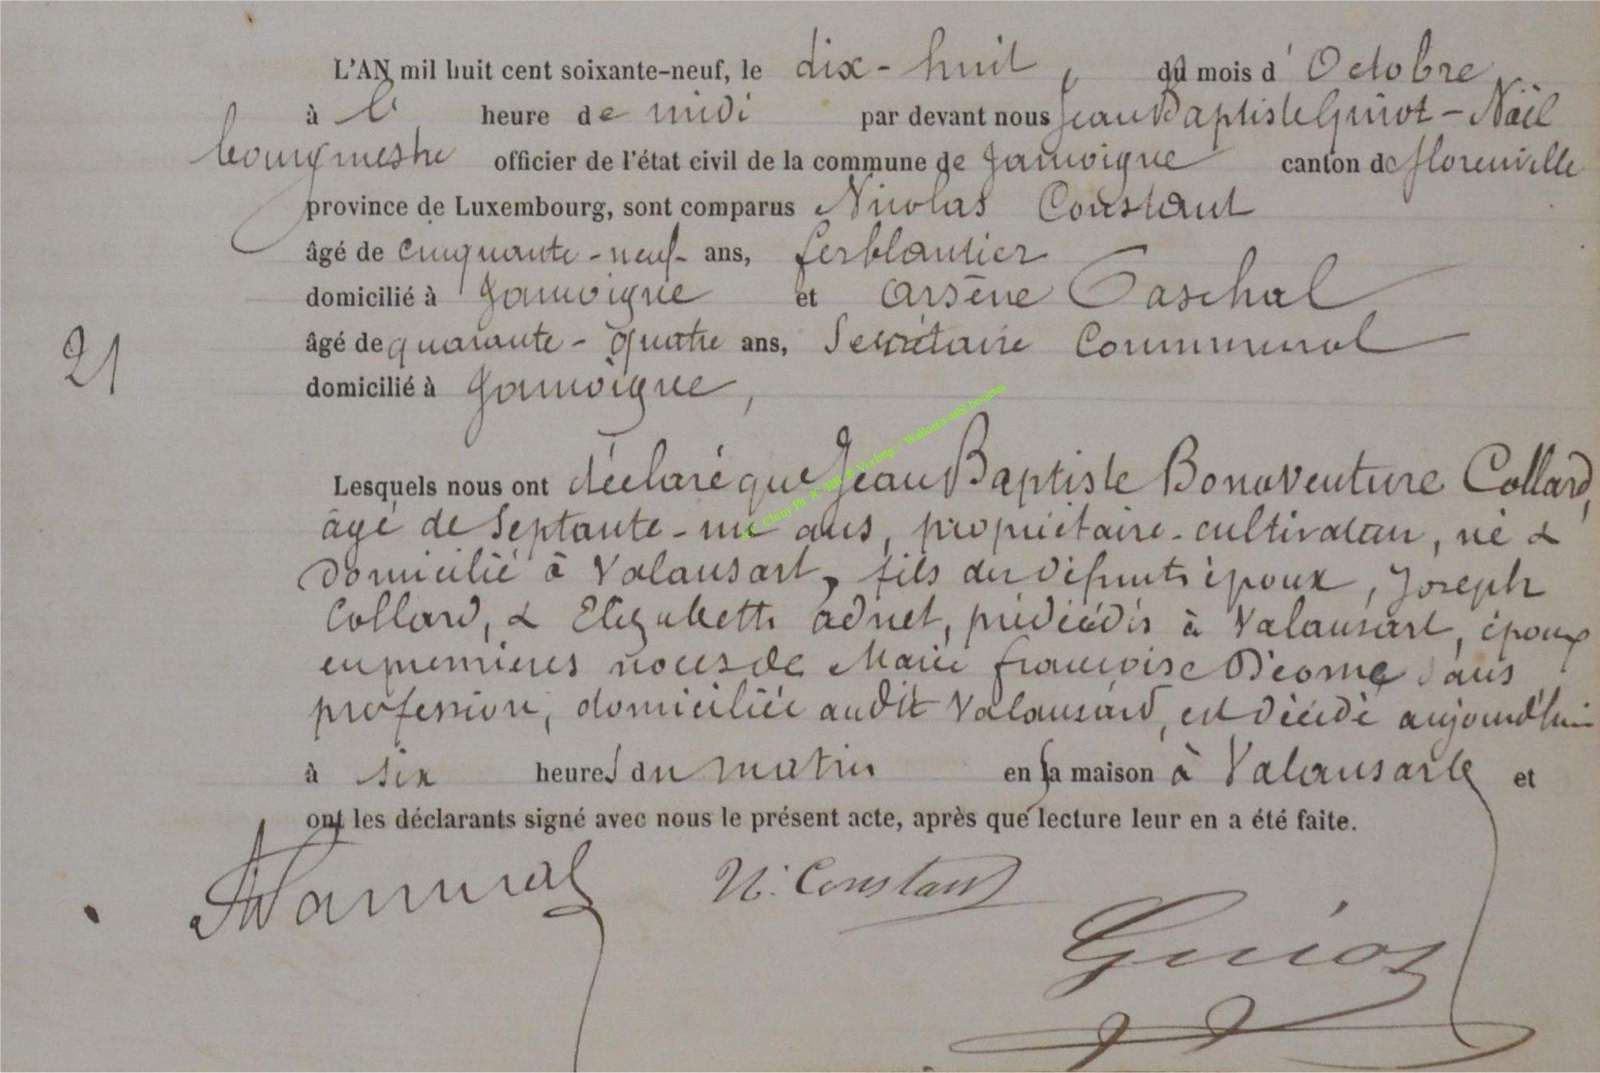 L'AN mil huit cent soixante-neuf, le dix-huit, du mois d'Octobre
à l' heure de midi par devant nous Jean Baptiste Guiot-Noël
bourgmestre officier de l'état civil de la commune de Jamoigne canton de florenville
province de Luxembourg, sont comparus Nicolas Constant
âgé de cinquante-neuf ans, ferblantier
domicilié à Jamoigne et Arsène
21
âgé de quarante-quatre ans, Secrétaire Communal
domicilié à Jamoigne,
Lesquels nous ont déclaré que Jean Baptiste Bonaventure Collard,
âgé de Septante-un ans, propriétaire-cultivateur, né &
domicilié à Valansart, fils des défunts époux, Joseph
Collard, & Elizabeth adnet, prédécédés à Valansart, époux
en premières noces de Marie françoise Déome sans
profession, domiciliée audit Valansard, est décédé aujourd'hui
à six heures du matin en sa maison à Valansart, et
ont les déclarants signé avec nous le présent acte, après que lecture leur en a été faite.
N. Constant
Guiot